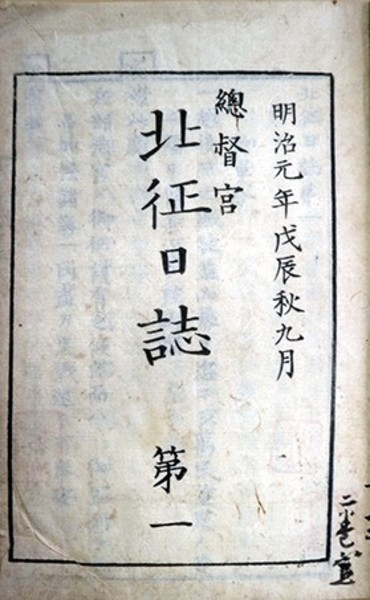 明治元年戊辰秋九月
總督宮
北征日誌 第一